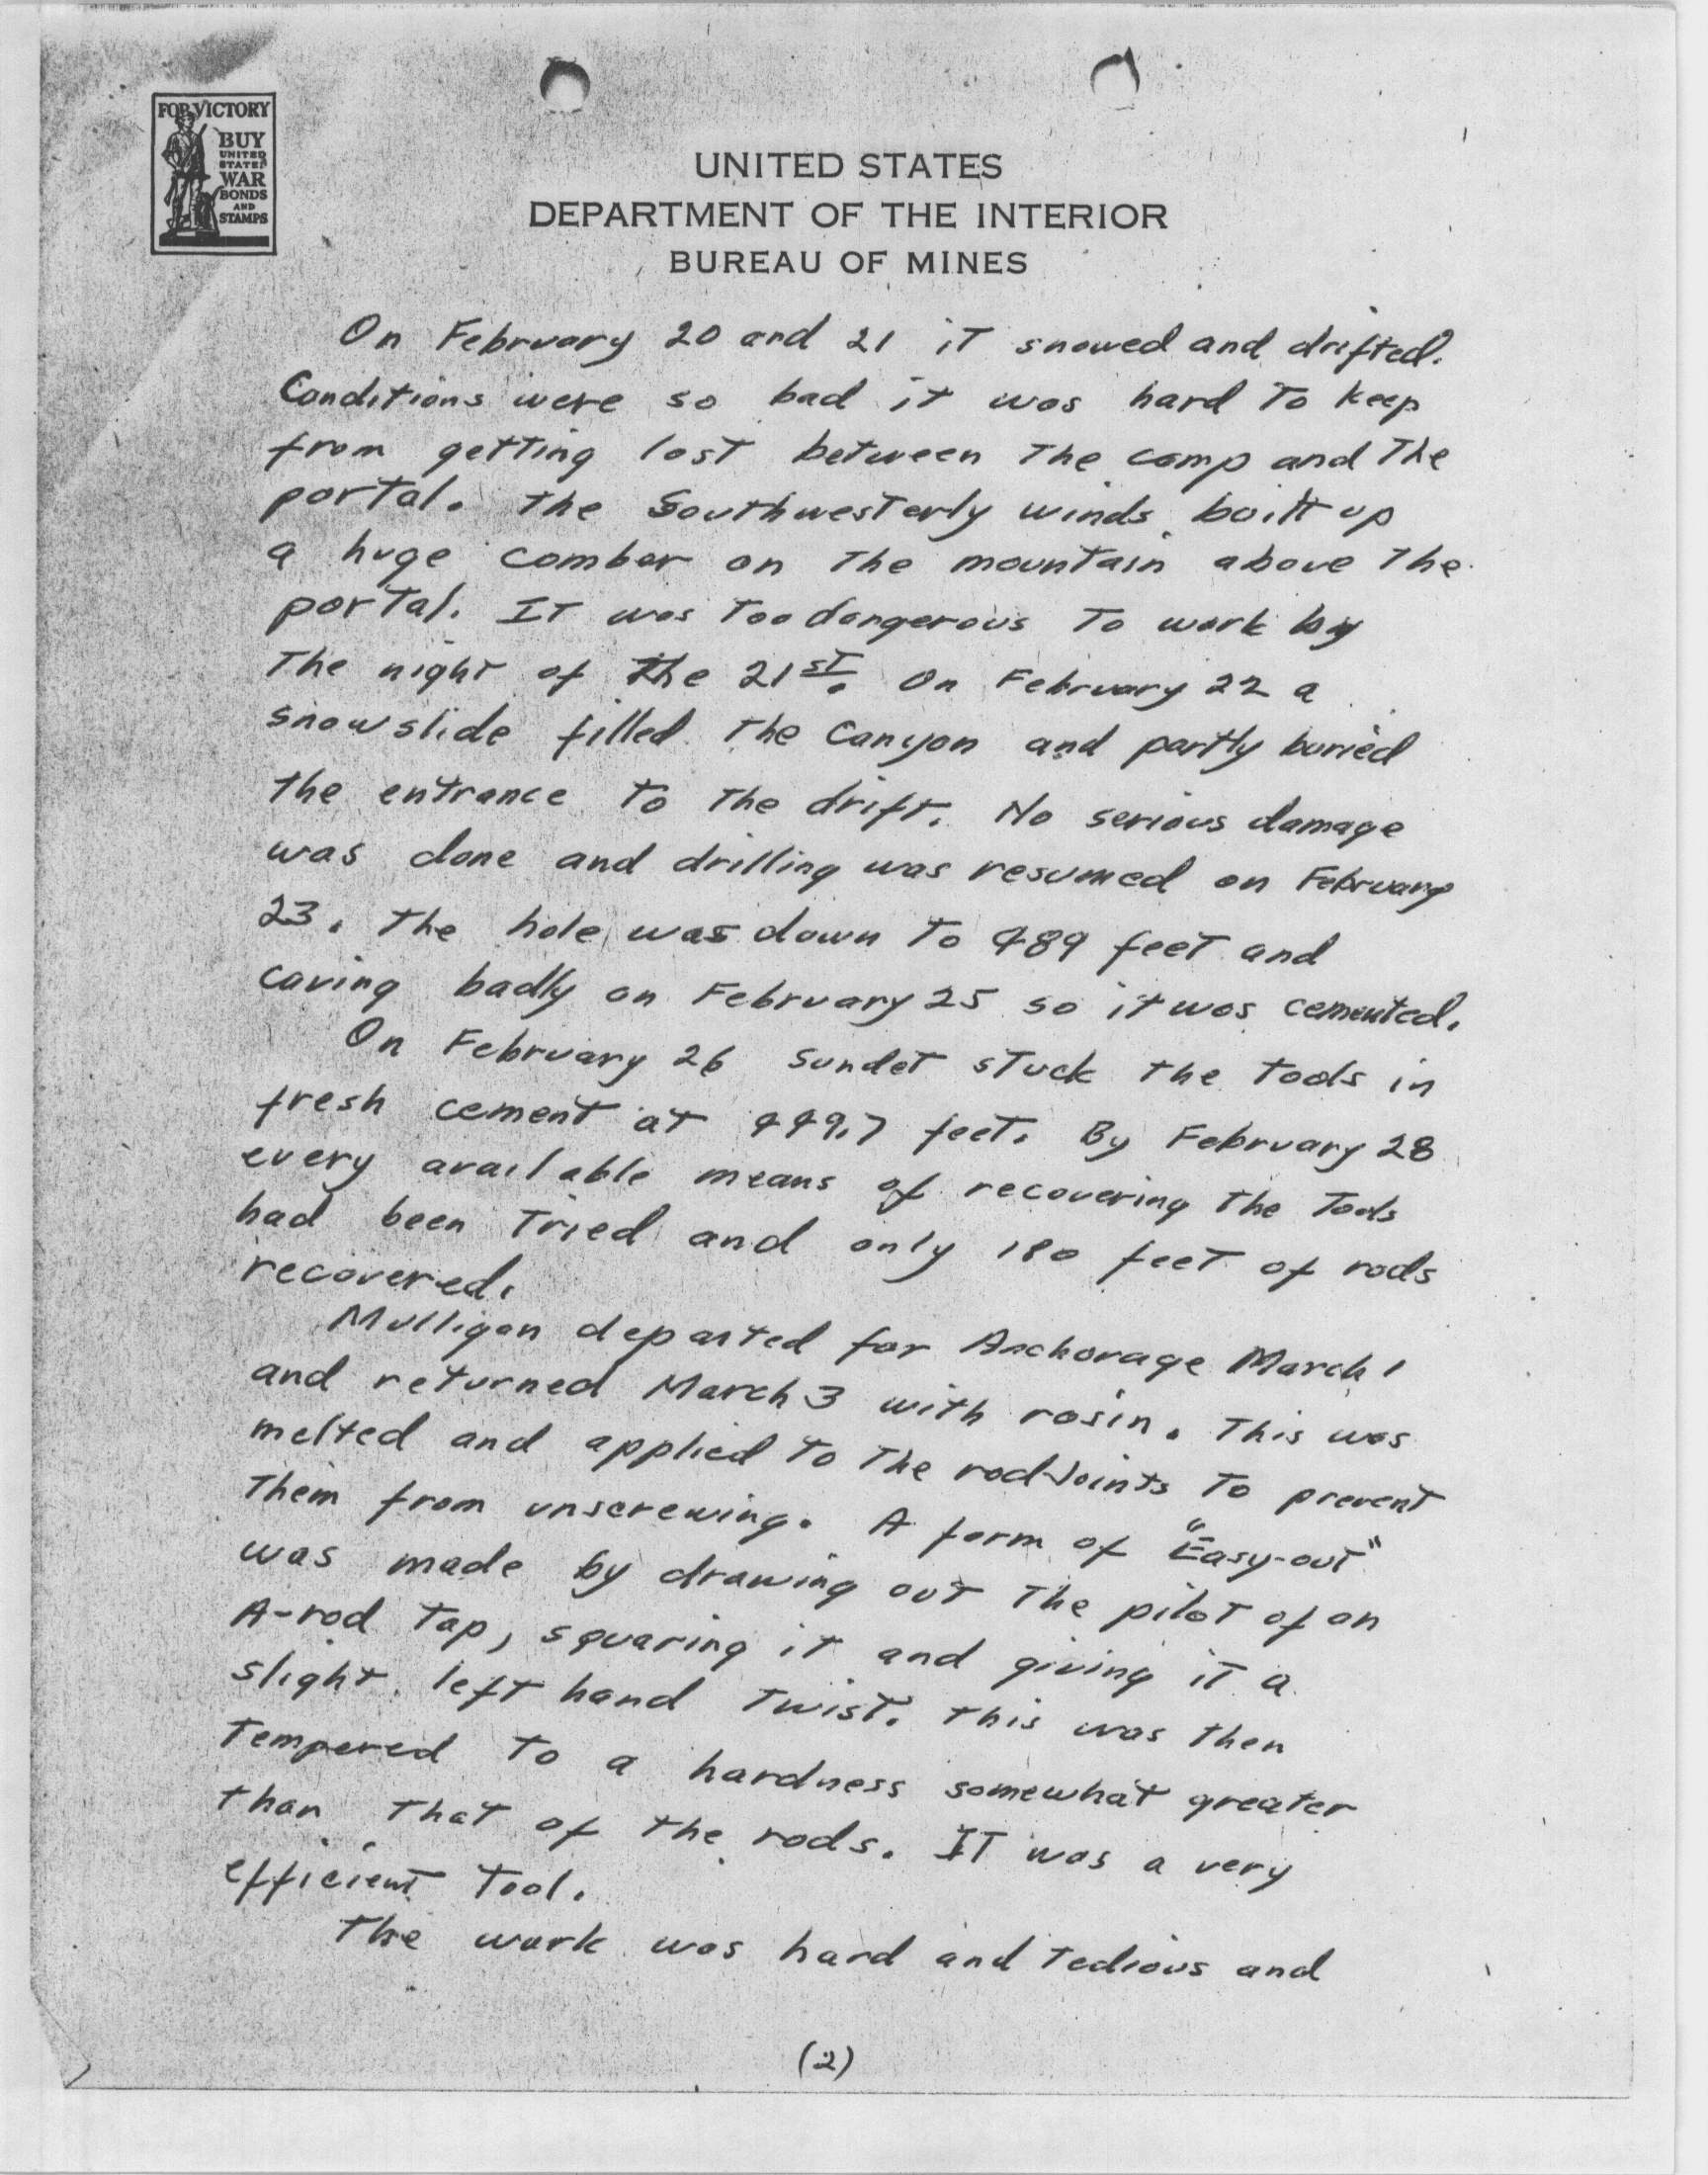 FOR VICTORY
BUY
UNITED
STATES
WAR
BONDS
AND
STAMPS
UNITED STATES
DEPARTMENT OF THE INTERIOR
BUREAU OF MINES
On February 20 and 21 it snowed and drifted.
Conditions were so bad it was hard to keep
from getting lost between the camp and the
portal. The Southwesterly winds built up
a huge comber on the mountain above the
portal. It was too dangerous to work by
the night of the 21st. On February 22 a
snowslide filled the Canyon and partly buried
the entrance to the drift. No serious damage
was done and drilling was resumed on February
23. The hole was down to 489 feet and
caving badly on February 25 so it was cemented.
On February 26 Sundet stuck the tools in
fresh cement at 449.7 feet. By February 28
every available means of recovering the tools
had been tried and only 180 feet of rods
recovered.
Mulligan departed for Anchorage March 1
and returned March 3 with rosin. This was
melted and applied to the rod joints to prevent
them from unscrewing. A form of "Easy-out"
was made by drawing out the pilot of an
A-rod tap, squaring it and giving it a
slight left hand twist. This was then
tempered to a hardness somewhat greater
than that of the rods. It was a very
efficient tool.
The work was hard and tedious and
(2)